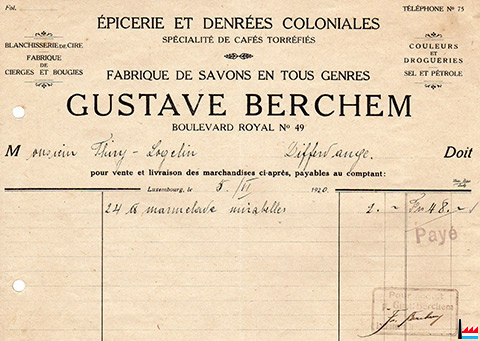 Fol.
TÉLÉPHONE Nº 75
ÉPICERIE ET DENRÉES COLONIALES
SPÉCIALITÉ DE CAFÉS TORRÉFIÉS
BLANCHISSERIE DE CIRE
FABRIQUE
DE
CIERGES ET BOUGIES
COULEURS
ET
DROGUERIES
SEL ET PÉTROLE
FABRIQUE DE SAVONS EN TOUS GENRES
GUSTAVE BERCHEM
BOULEVARD ROYAL Nº 49
Monsieur Thiry-Logelin Differdange. Doit
pour vente et livraison des marchandises ci-après, payables au comptant:
Luxembourg, le 5/VI 1920
24 marmelade mirabelles 2.- Frs 48.-
Payé
Pour
Berchem